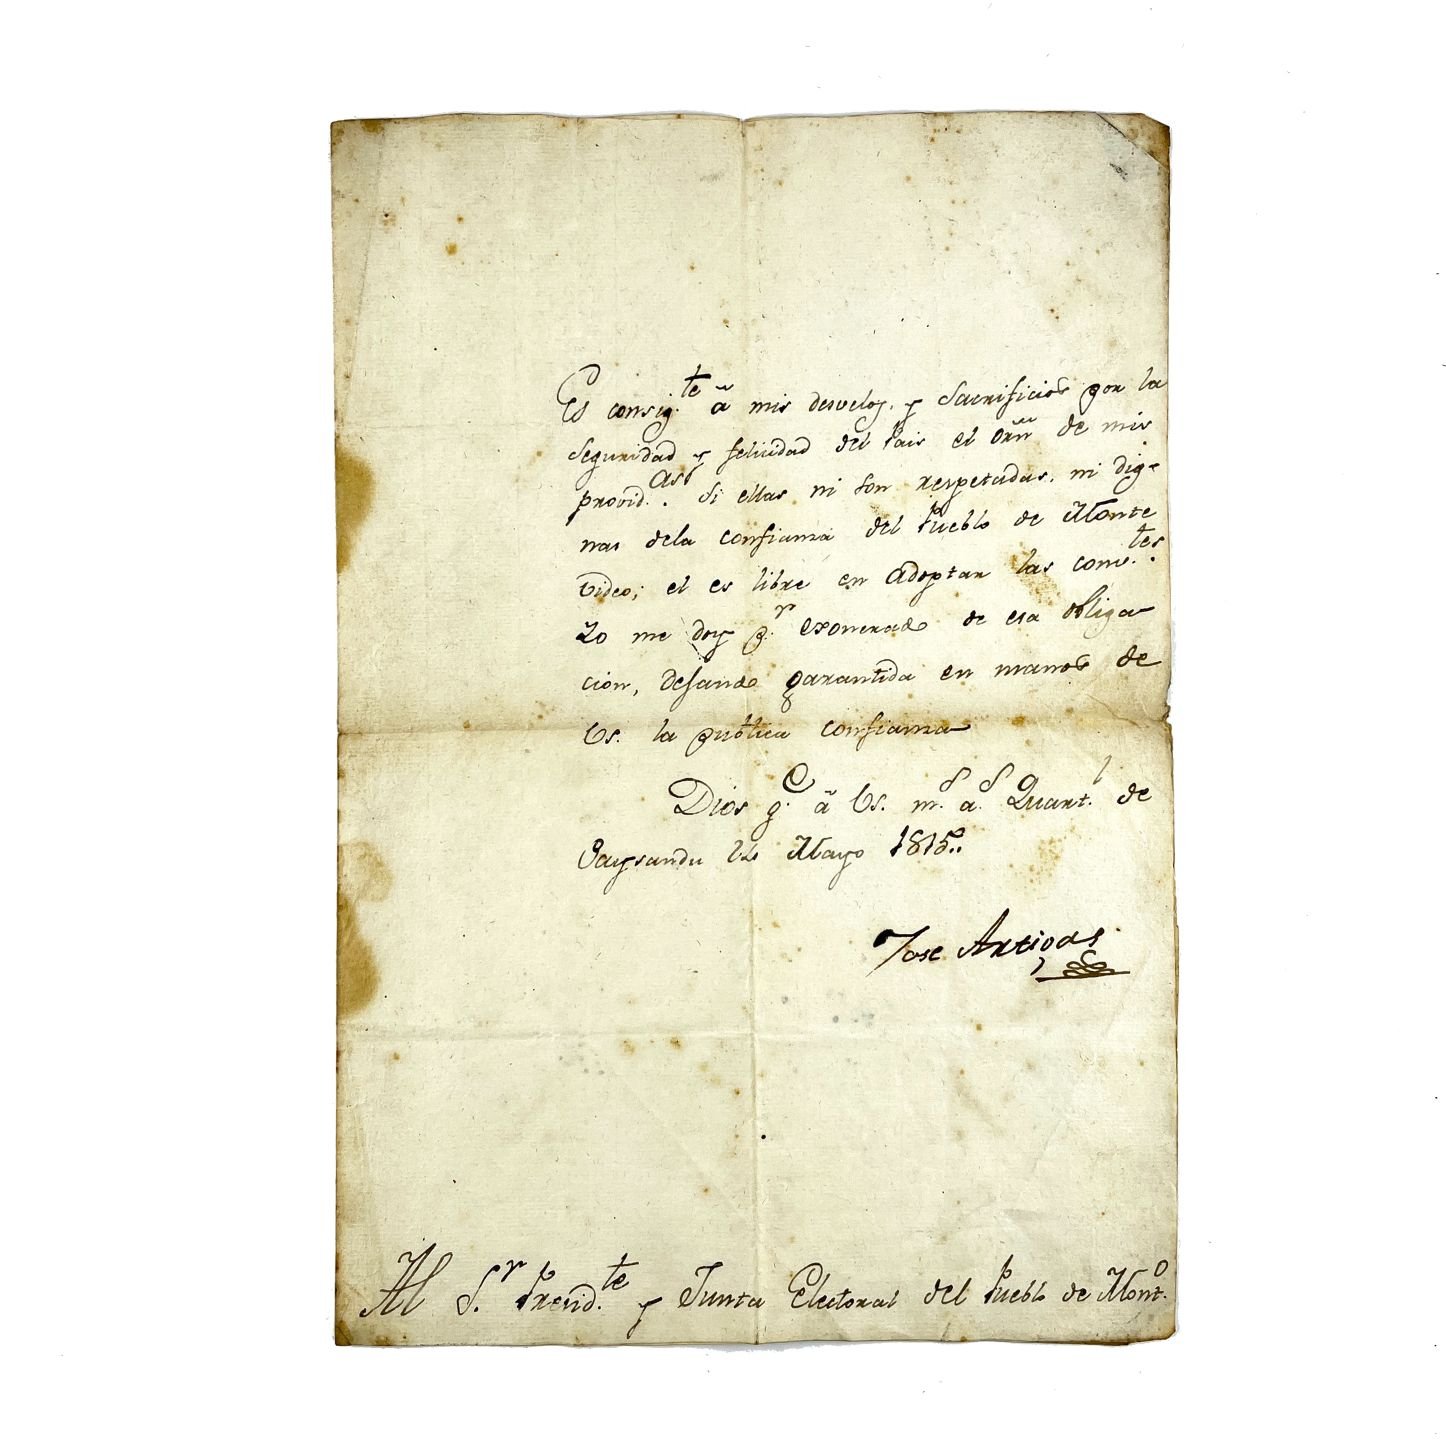 Es consig.te â mis desvelos, y Sacrificios por la
Seguridad y felicidad del Pais el orn̄ de mis
provid.as. Si ellas ni son respetadas, ni dig-
nas dela confianza del Pueblo de Monte
video; el es libre en adoptar las conv.tes.
Yo me doy p.r exonerado de esa obliga
cion, dejando garantida en manos de
Vs. la publica confianza
Dios g.e â Vs. m.s a.s Quart.l de
Paysandu Mayo 1815..
Jose Artigas
Al S.r Presid.te y Junta Electoral del Pueblo de Mont.o